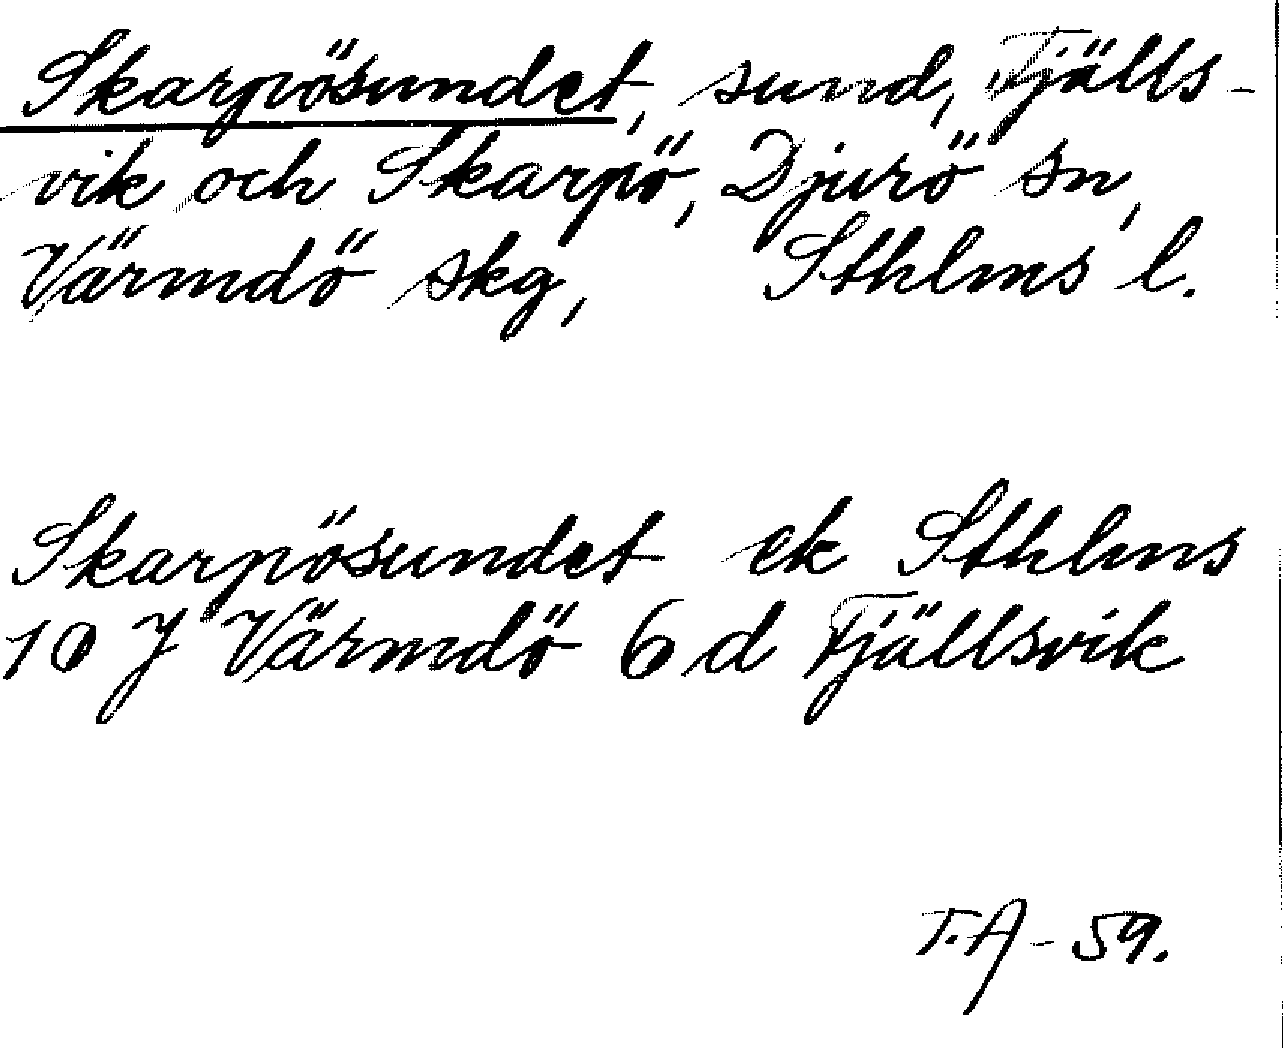 Skarpösundet, sund, Fjälls-
vik och Skarpö, Djurö sn,
Värmdö skg, Sthlms l.
Skarpösundet ek Sthlms
10 J Värmdö 6 d Fjällsvik
T.A - 59.